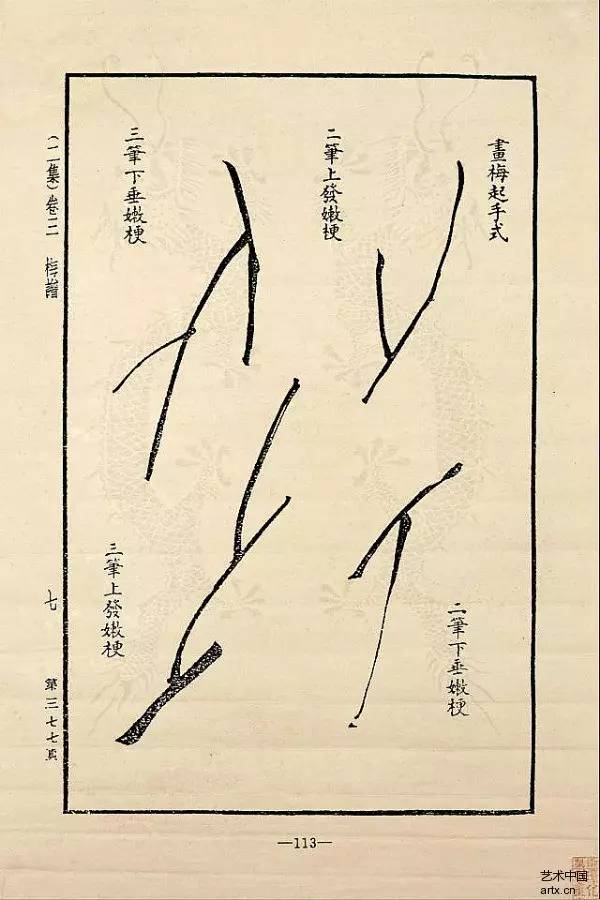 畫梅起手式
二筆上發嫩梗
二筆下垂嫩梗
三筆下垂嫩梗
三筆上發嫩梗
（二集）卷三 梅譜
七
第三七七頁
—113—
艺术中国
artx.cn